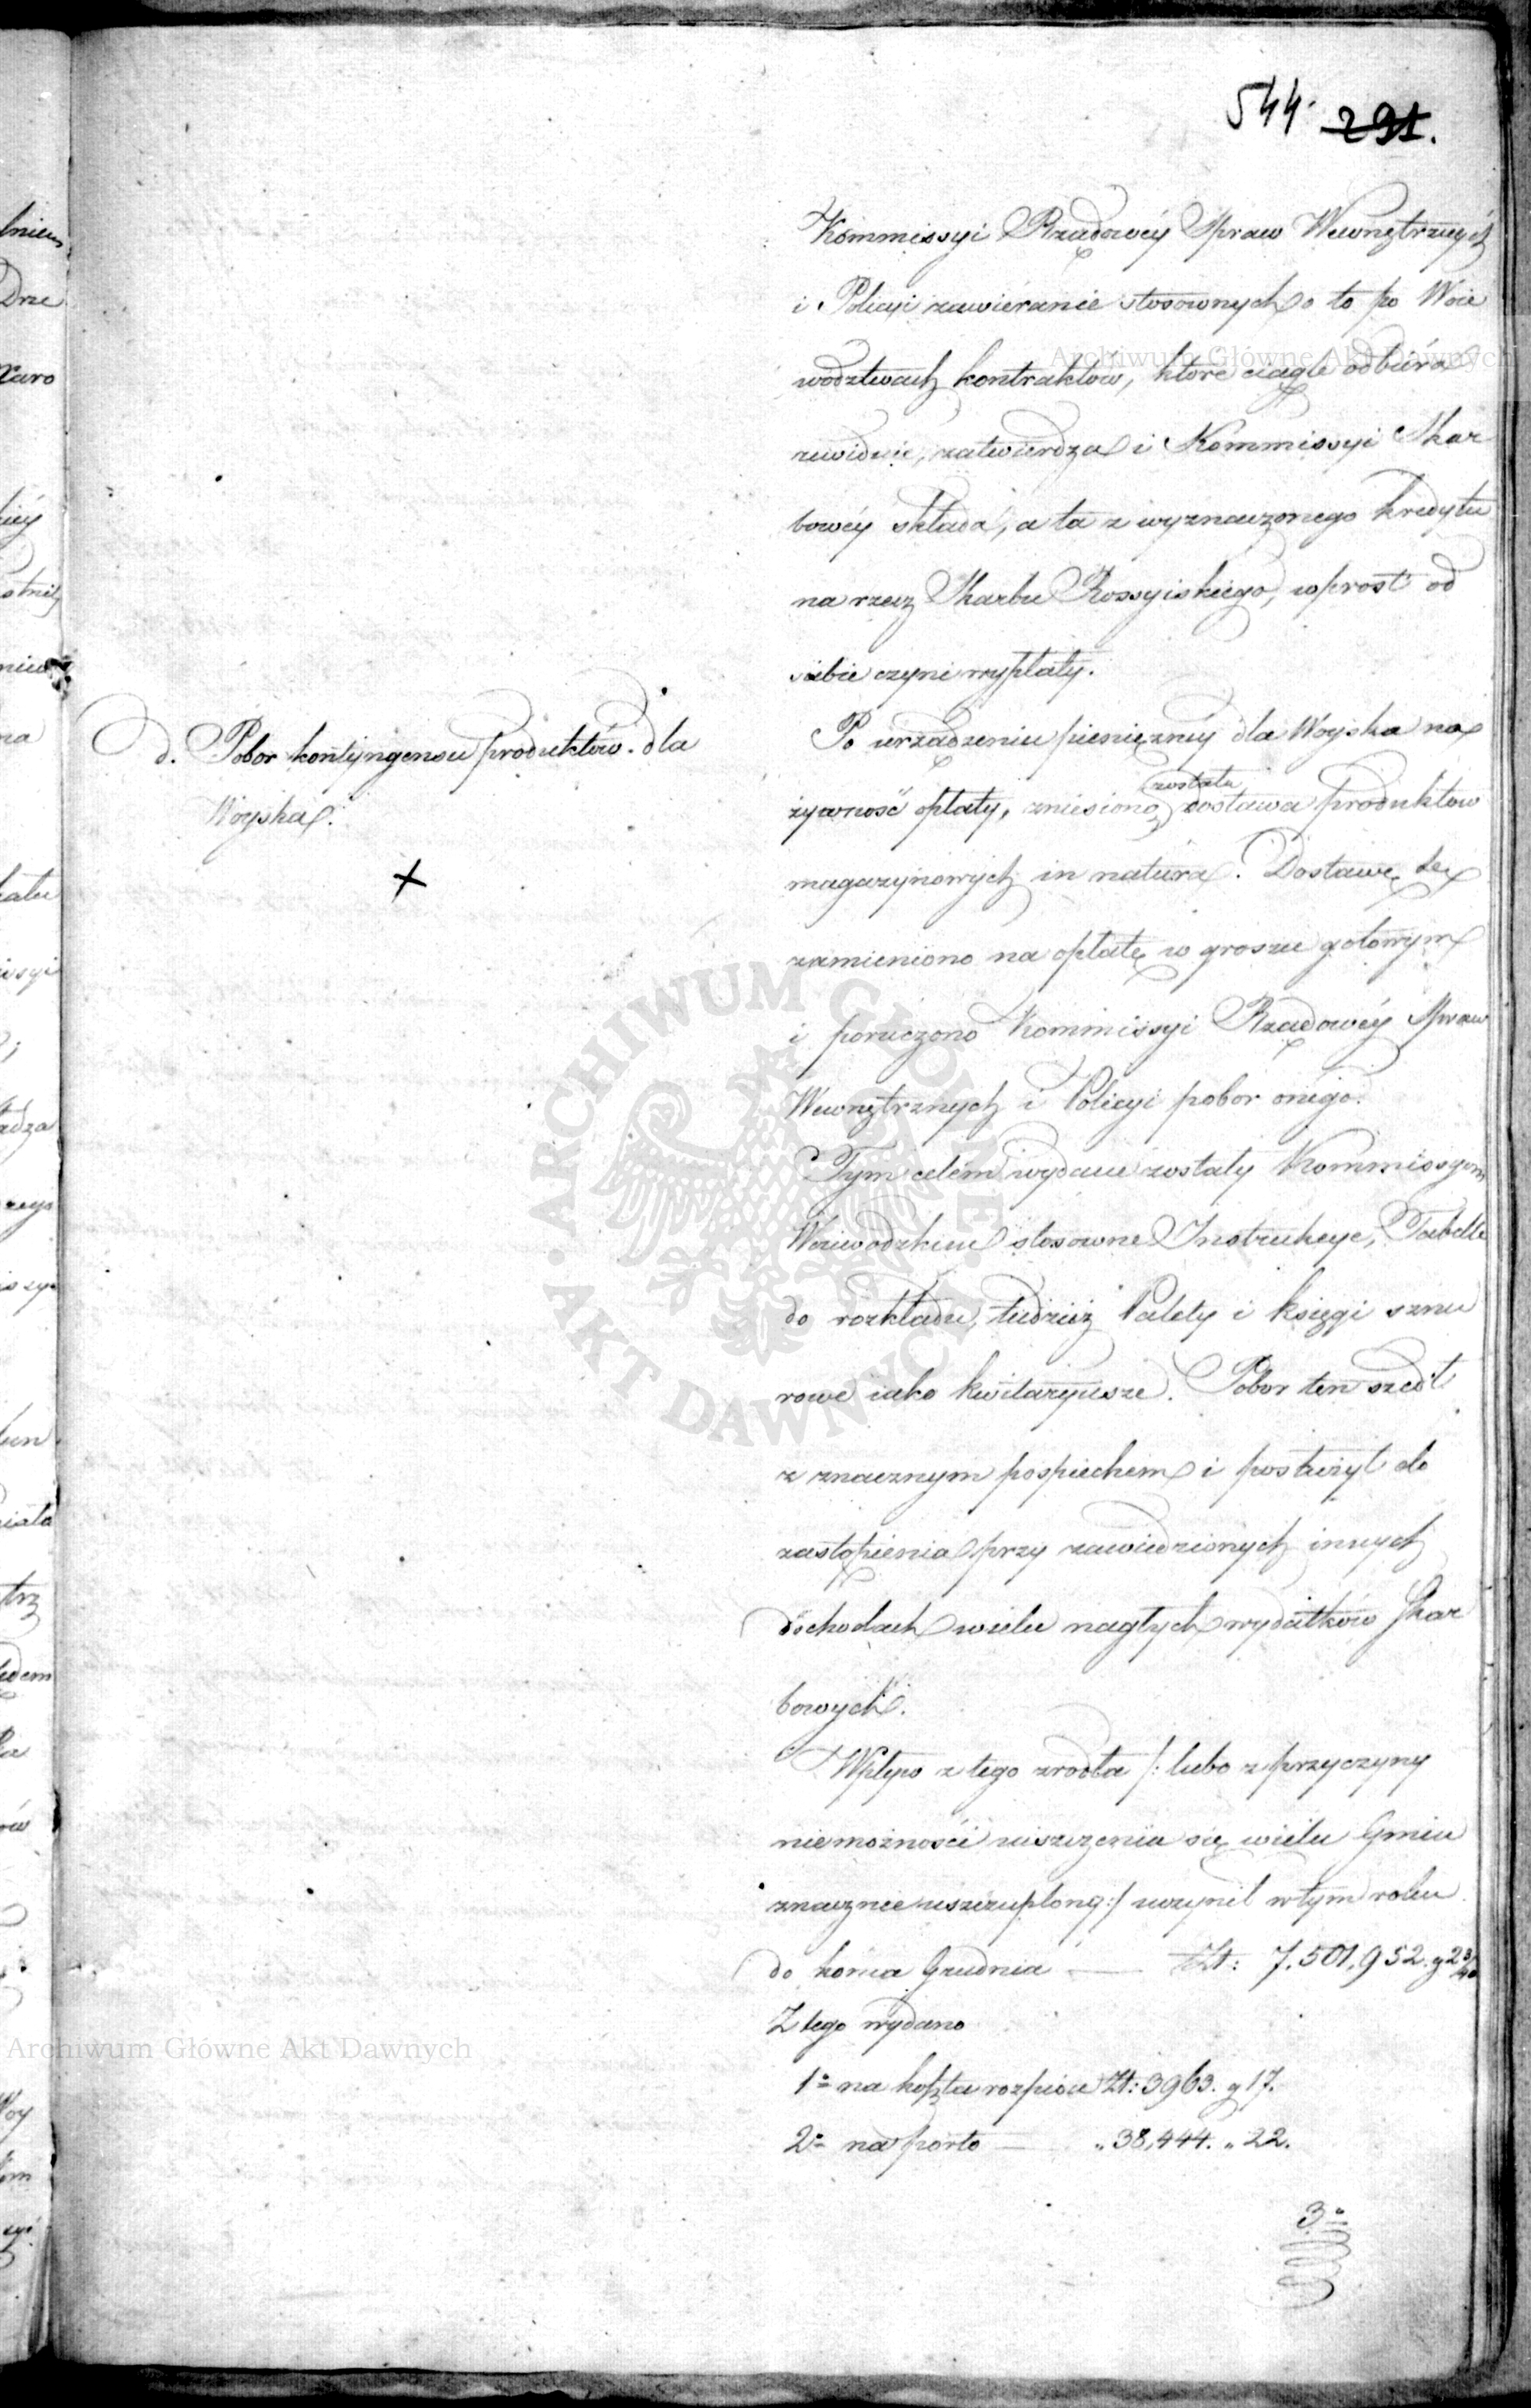 544. 291.
Kommissyi Rządowéy Spraw Wewnętrznych
i Policyi zawieranie stosownych o to po Woie
wodztwach kontraktow, ktore ciągle odbiera
rewiduie, zatwierdza i Kommissyi Skar
bowéy składa, a ta z wyznaczonego kredytu
na rzecz Skarbu Rossyiskiego, wprost od
siebie czyni wypłaty.
d. Pobor kontyngensu produktów dla
Woyska.
Po urządzeniu pieniężnéy dla Woyska na
żywność opłaty, zniesiona została dostawa produktow
magazynowych in natura. Dostawę tę
zamieniono na opłatę w groszu gotowym
i poruczono Kommissyi Rządowéy Spraw
Wewnętrznych i Policyi pobor onégo.
Tym celem wydane zostały Kommissyom
Woiewodzkim stosowne Instrukcye, Tabelle
do rozkładu, tudzież Palety i księgi sznu
rowe iako kwitaryusze. Pobor ten szedł
z znacznym pospiechem i posłużył do
zastąpienia przy zawiedzionych innych
dochodach wielu nagłych wydatków Skar
bowych.
Wpływ z tego zrodła /: lubo z przyczyny
niemożności uiszczenia się wielu Gmin
znacznie uszczuplony :/ uczynił w tym roku
do końca Grudnia — Zł: 7,501,952. g 2 3/40
Z tego wydano
1o na koszta rozpisu Zł: 3963. g 17.
2o na porto — „ 38,444. „ 22.
3o
Archiwum Główne Akt Dawnych
Archiwum Główne Akt Dawnych
ARCHIWUM GŁÓWNE · AKT DAWNYCH ·